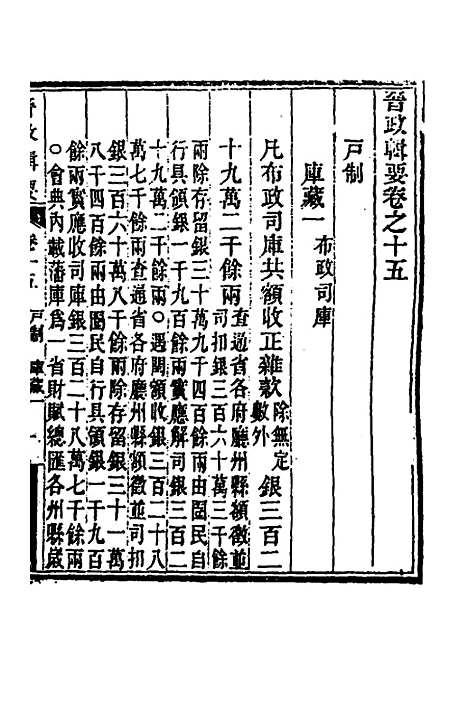 晉政輯要卷之十五
戶制
庫藏一 布政司庫
凡布政司庫共額收正雜款除無定數外銀三百二
十九萬二千餘兩查通省各府廳州縣額徵並
司扣銀三百六十萬三千餘
兩除存留銀三十萬九千四百餘兩由囤民自
行具領銀一千九百餘兩實應解司銀三百二
十九萬二千餘兩○遇閏額收銀三百二十八
萬七千餘兩查通省各府廳州縣額徵並司扣
銀三百六十萬八千餘兩除存留銀三十一萬
八千四百餘兩由囤民自行具領銀一千九百
餘兩實應收司庫銀三百二十八萬七千餘兩
○會典內載藩庫爲一省財賦總匯各州縣歲
晉政輯要 卷十五 戶制 庫藏一 一